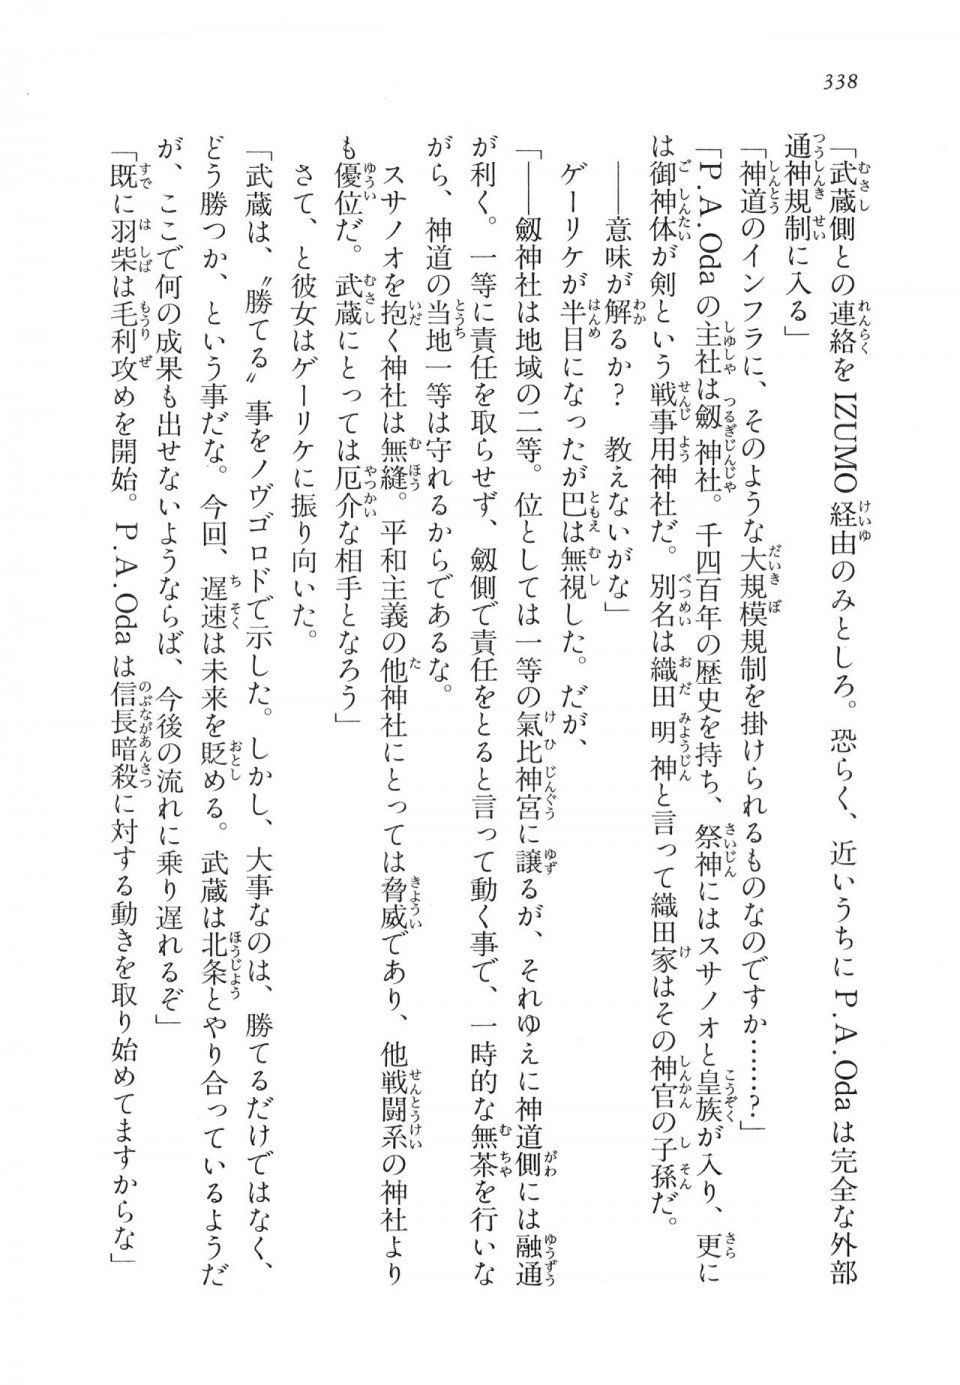 338
「武蔵側との連絡を IZUMO 経由のみとしろ。恐らく、近いうちに P.A.Oda は完全な外部
通神規制に入る」
「神道のインフラに、そのような大規模規制を掛けられるものなのですか……？」
「P.A.Oda の主社は劔神社。千四百年の歴史を持ち、祭神にはスサノオと皇族が入り、更に
は御神体が剣という戦事用神社だ。別名は織田明神と言って織田家はその神官の子孫だ。
――意味が解るか？　教えないがな」
ゲーリケが半目になったが巴は無視した。だが、
「――劔神社は地域の二等。位としては一等の氣比神宮に譲るが、それゆえに神道側には融通
が利く。一等に責任を取らせず、劔側で責任をとると言って動く事で、一時的な無茶を行いな
がら、神道の当地一等は守れるからであるな。
スサノオを抱く神社は無縫。平和主義の他神社にとっては脅威であり、他戦闘系の神社より
も優位だ。武蔵にとっては厄介な相手となろう」
さて、と彼女はゲーリケに振り向いた。
「武蔵は、〝勝てる〟事をノヴゴロドで示した。しかし、大事なのは、勝てるだけではなく、
どう勝つか、という事だな。今回、遅速は未来を貶める。武蔵は北条とやり合っているようだ
が、ここで何の成果も出せないようならば、今後の流れに乗り遅れるぞ」
「既に羽柴は毛利攻めを開始。P.A.Oda は信長暗殺に対する動きを取り始めてますからな」